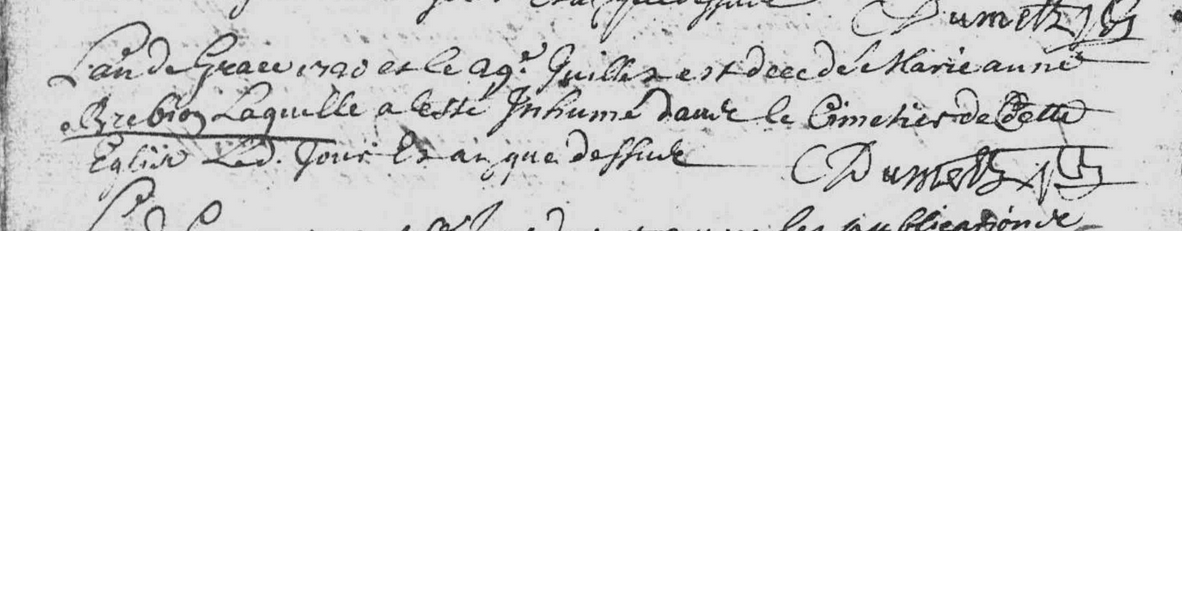 et an que dessus Dumetz
L'an de Grace 1720 et le 29e Juillet est decedé Marie anne
Brebion Laquelle a esté Inhumé dans le Cimetier de Cette
Eglise Led. Jour et an que dessus Dumetz
les publication de